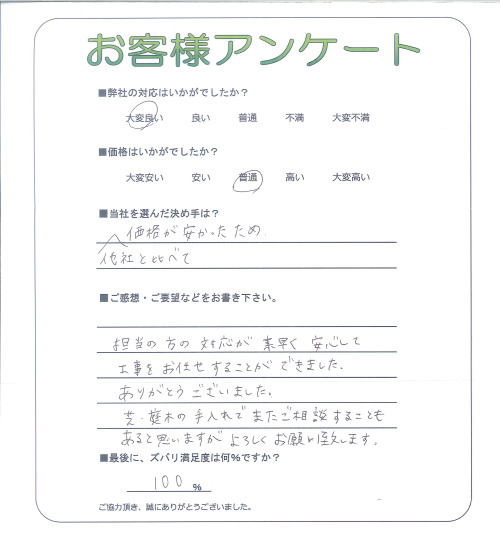 お客様アンケート
■弊社の対応はいかがでしたか？
大変良い 良い 普通 不満 大変不満
■価格はいかがでしたか？
大変安い 安い 普通 高い 大変高い
■当社を選んだ決め手は？
価格が安かったため
他社と比べて
■ご感想・ご要望などをお書き下さい。
担当の方の対応が素早く安心して
工事をお任せすることができました。
ありがとうございました。
芝・庭木の手入れでまたご相談することも
あると思いますがよろしくお願い致します。
■最後に、ズバリ満足度は何%ですか？
100 %
ご協力頂き、誠にありがとうございました。